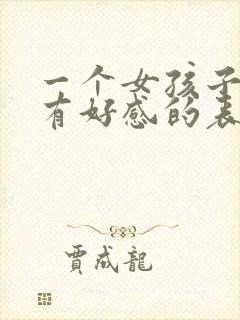 一个女孩子
有好感的表
賈成龍